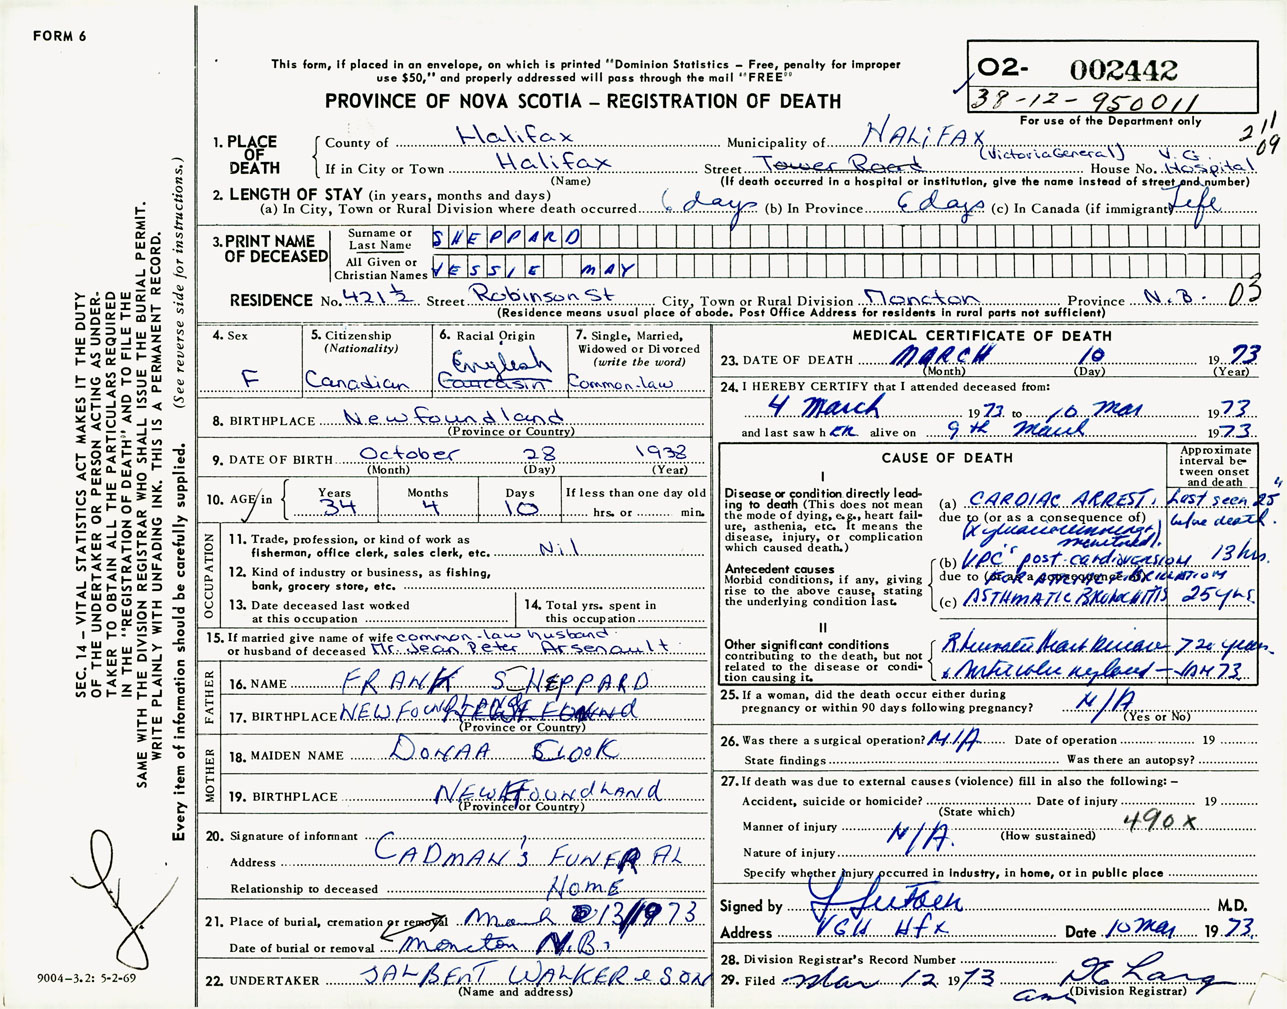 FORM 6
This form, if placed in an envelope, on which is printed "Dominion Statistics – Free, penalty for improper
use $50," and properly addressed will pass through the mail "FREE"
PROVINCE OF NOVA SCOTIA – REGISTRATION OF DEATH
02- 002442
38-12-950011
For use of the Department only
211
09
1. PLACE OF DEATH
County of Halifax Municipality of HALIFAX
(Victoria General) V.G.
If in City or Town Halifax Street Tower Road House No. Hospital
(Name) (If death occurred in a hospital or institution, give the name instead of street and number)
2. LENGTH OF STAY (in years, months and days)
(a) In City, Town or Rural Division where death occurred 6 days (b) In Province 6 days (c) In Canada (if immigrant) Life
3. PRINT NAME OF DECEASED
Surname or Last Name SHEPPARD
All Given or Christian Names VESSIE MAY
RESIDENCE No. 421½ Street Robinson St City, Town or Rural Division Moncton Province N.B. 03
(Residence means usual place of abode. Post Office Address for residents in rural parts not sufficient)
4. Sex F
5. Citizenship (Nationality) Canadian
6. Racial Origin English Caucasin
7. Single, Married, Widowed or Divorced (write the word) Common-law
8. BIRTHPLACE Newfoundland
(Province or Country)
9. DATE OF BIRTH October 28 1938
(Month) (Day) (Year)
10. AGE in Years 34 Months 4 Days 10 If less than one day old hrs. or min.
OCCUPATION
11. Trade, profession, or kind of work as fisherman, office clerk, sales clerk, etc. Nil
12. Kind of industry or business, as fishing, bank, grocery store, etc.
13. Date deceased last worked at this occupation
14. Total yrs. spent in this occupation
15. If married give name of wife or husband of deceased common-law husband Mr. Jean Peter Arsenault
FATHER
16. NAME FRANK SHEPPARD
17. BIRTHPLACE NEWFOUNDLAND
(Province or Country)
MOTHER
18. MAIDEN NAME DONAA CLOOK
19. BIRTHPLACE NEWFOUNDLAND
(Province or Country)
20. Signature of informant CADMAN'S FUNERAL
Address HOME
Relationship to deceased
21. Place of burial, cremation or removal March 13/1973
Date of burial or removal Moncton N.B.
22. UNDERTAKER JALBERT WALKER & SON
(Name and address)
MEDICAL CERTIFICATE OF DEATH
23. DATE OF DEATH MARCH 10 1973
(Month) (Day) (Year)
24. I HEREBY CERTIFY that I attended deceased from:
4 March 1973 to 10 Mar 1973
and last saw her alive on 9th March 1973
CAUSE OF DEATH
Approximate interval between onset and death
I
Disease or condition directly leading to death (This does not mean the mode of dying, e.g., heart failure, asthenia, etc. It means the disease, injury, or complication which caused death.)
(a) CARDIAC ARREST. Last seen 25" before death.
due to (or as a consequence of)
monitored).
Antecedent causes
Morbid conditions, if any, giving rise to the above cause, stating the underlying condition last.
(b) VPC's post cardioversion 13 hrs.
due to (or as a consequence of) FOR ATRIAL FIBRILLATION
(c) ASTHMATIC BRONCHITIS 25 yrs.
II
Other significant conditions contributing to the death, but not related to the disease or condition causing it.
Rheumatic Heart Disease 720 years.
25. If a woman, did the death occur either during pregnancy or within 90 days following pregnancy? N/A
(Yes or No)
26. Was there a surgical operation? N/A Date of operation 19
State findings Was there an autopsy?
27. If death was due to external causes (violence) fill in also the following: –
Accident, suicide or homicide? Date of injury 19
(State which)
Manner of injury N/A. (How sustained) 490x
Nature of injury
Specify whether injury occurred in industry, in home, or in public place
Signed by M.D.
Address VGH Hfx Date 10 Mar 1973
28. Division Registrar's Record Number
29. Filed Mar 12 1973 DE Lang
(Division Registrar)
SEC. 14 – VITAL STATISTICS ACT MAKES IT THE DUTY
OF THE UNDERTAKER OR PERSON ACTING AS UNDER-
TAKER TO OBTAIN ALL THE PARTICULARS REQUIRED
IN THE "REGISTRATION OF DEATH" AND TO FILE THE
SAME WITH THE DIVISION REGISTRAR WHO SHALL ISSUE THE BURIAL PERMIT.
WRITE PLAINLY WITH UNFADING INK. THIS IS A PERMANENT RECORD.
Every item of information should be carefully supplied. (See reverse side for instructions.)
9004-3.2: 5-2-69